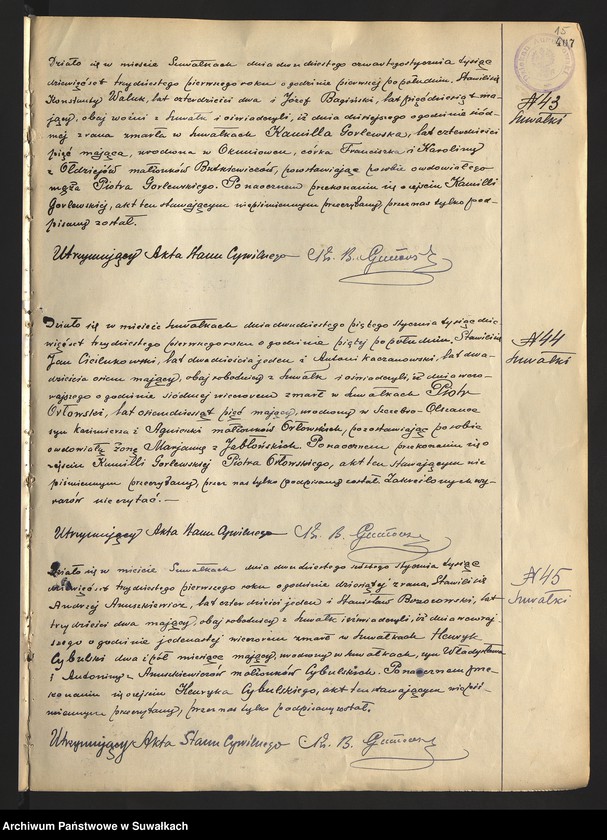 15
407
Działo się w mieście Suwałkach dnia dwudziestego czwartego stycznia tysiąc
dziewięćset trzydziestego pierwszego roku o godzinie pierwszej po południu. Stawili się
Konstanty Waluk, lat czterdzieści dwa i Józef Bagiński, lat pięćdziesiąt ma-
jący, obaj woźni z Suwałk i oświadczyli, iż dnia dzisiejszego o godzinie siód-
mej z rana zmarła w Suwałkach Kamilla Gorlewska, lat czterdzieści
pięć mająca, urodzona w Okuniowcu, córka Franciszka i Karoliny
z Ołdziejów małżonków Butkiewiczów, pozostawiając po sobie owdowiałego
męża Piotra Gorlewskiego. Po naocznem przekonaniu się o zejściu Kamilli
Gorlewskiej, akt ten stawającym niepiśmiennym przeczytany, przez nas tylko pod-
pisany został.
Utrzymujący Akta Stanu Cywilnego Ks. B.
N 43
Suwałki
Działo się w mieście Suwałkach dnia dwudziestego piątego stycznia tysiąc dzie-
więćset trzydziestego pierwszego roku o godzinie piątej po południu. Stawili się
Jan Cicilukowski, lat dwadzieścia jeden i Antoni Kaczanowski, lat dwa-
dzieścia osiem mający, obaj robotnicy z Suwałk i oświadczyli, iż dnia wczo-
rajszego o godzinie siódmej wieczorem zmarł w Suwałkach Piotr
Orłowski, lat osiemdziesiąt pięć mający, urodzony w Szczebro-Olszance
syn Kazimierza i Agnieszki małżonków Orłowskich, pozostawiając po sobie
owdowiałą żonę Marjannę z Jabłońskich. Po naocznem przekonaniu się o
zejściu Kamilli Gorlewskiej Piotra Orłowskiego, akt ten stawającym nie
piśmiennym przeczytany, przez nas tylko podpisany został. Zakreślonych wy-
razów nie czytać.
Utrzymujący Akta Stanu Cywilnego Ks. B.
N 44
Suwałki
Działo się w mieście Suwałkach dnia dwudziestego szóstego stycznia tysiąc
dziewięćset trzydziestego pierwszego roku o godzinie dziesiątej z rana. Stawili się
Andrzej Anuszkiewicz, lat czterdzieści jeden i Stanisław Brzozowski, lat
trzydzieści dwa mający, obaj robotnicy z Suwałk i oświadczyli, iż dnia wczoraj-
szego o godzinie jedenastej wieczorem zmarł w Suwałkach Henryk
Cybulski dwa i pół miesiąca mający, urodzony w Suwałkach, syn Władysława
i Antoniny z Anuszkiewiczów małżonków Cybulskich. Po naocznem prze-
konaniu się o zejściu Henryka Cybulskiego, akt ten stawającym niepiś-
miennym przeczytany, przez nas tylko podpisany został.
Utrzymujący Akta Stanu Cywilnego Ks. B.
N 45
Suwałki
Archiwum Państwowe w Suwałkach